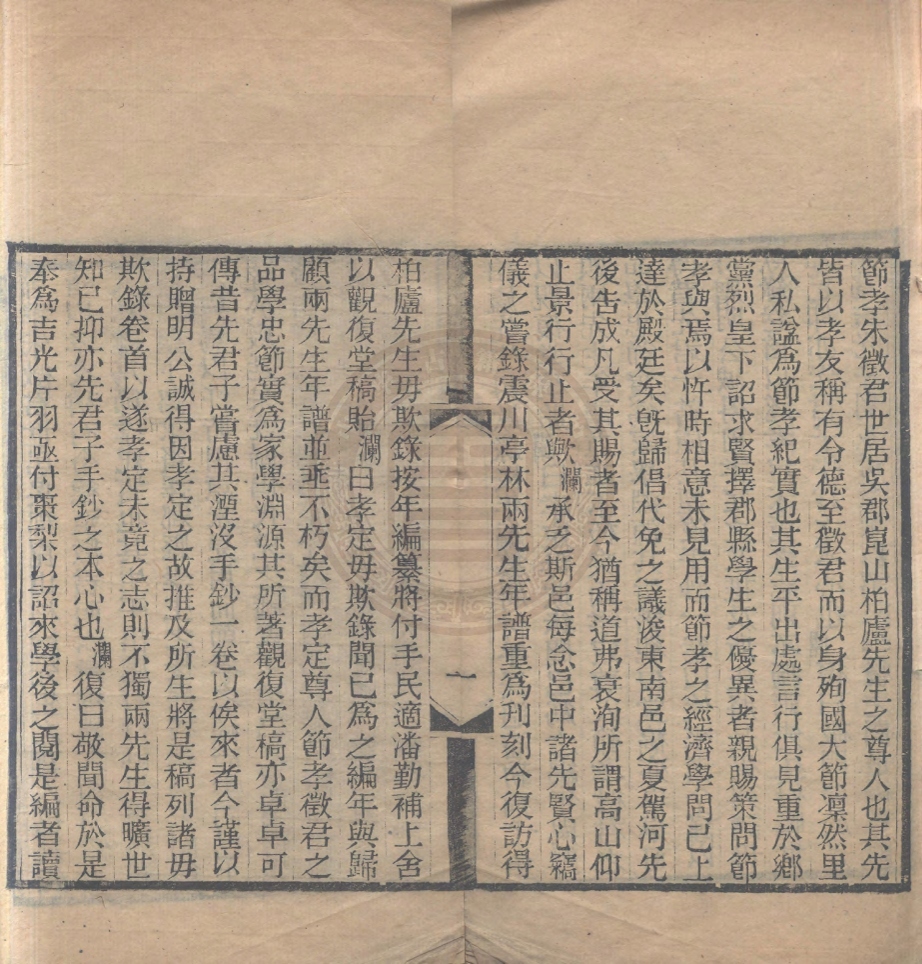 節孝朱徵君世居吳郡崑山柏廬先生之尊人也其先
皆以孝友稱有令德至徵君而以身殉國大節凜然里
人私諡爲節孝紀實也其生平出處言行俱見重於鄉
黨烈皇下詔求賢擇郡縣學生之優異者親賜策問節
孝與焉以忤時相意未見用而節孝之經濟學問已上
達於殿廷矣既歸倡代免之議浚東南邑之夏駕河先
後告成凡受其賜者至今猶稱道弗衰洵所謂高山仰
止景行行止者歟瀾承乏斯邑每念邑中諸先賢心竊
儀之嘗錄震川亭林兩先生年譜重爲刊刻今復訪得
柏廬先生毋欺錄按年編纂將付手民適潘勤補上舍
以觀復堂稿貽瀾曰孝定毋欺錄聞已爲之編年與歸
顧兩先生年譜並垂不朽矣而孝定尊人節孝徵君之
品學忠節實爲家學淵源其所著觀復堂稿亦卓卓可
傳昔先君子嘗慮其湮沒手鈔一卷以俟來者今謹以
持贈明公誠得因孝定之故推及所生將是稿列諸毋
欺錄卷首以遂孝定未竟之志則不獨兩先生得曠世
知已抑亦先君子手鈔之本心也瀾復曰敬聞命於是
奉爲吉光片羽亟付棗梨以詔來學後之閱是編者讀
一